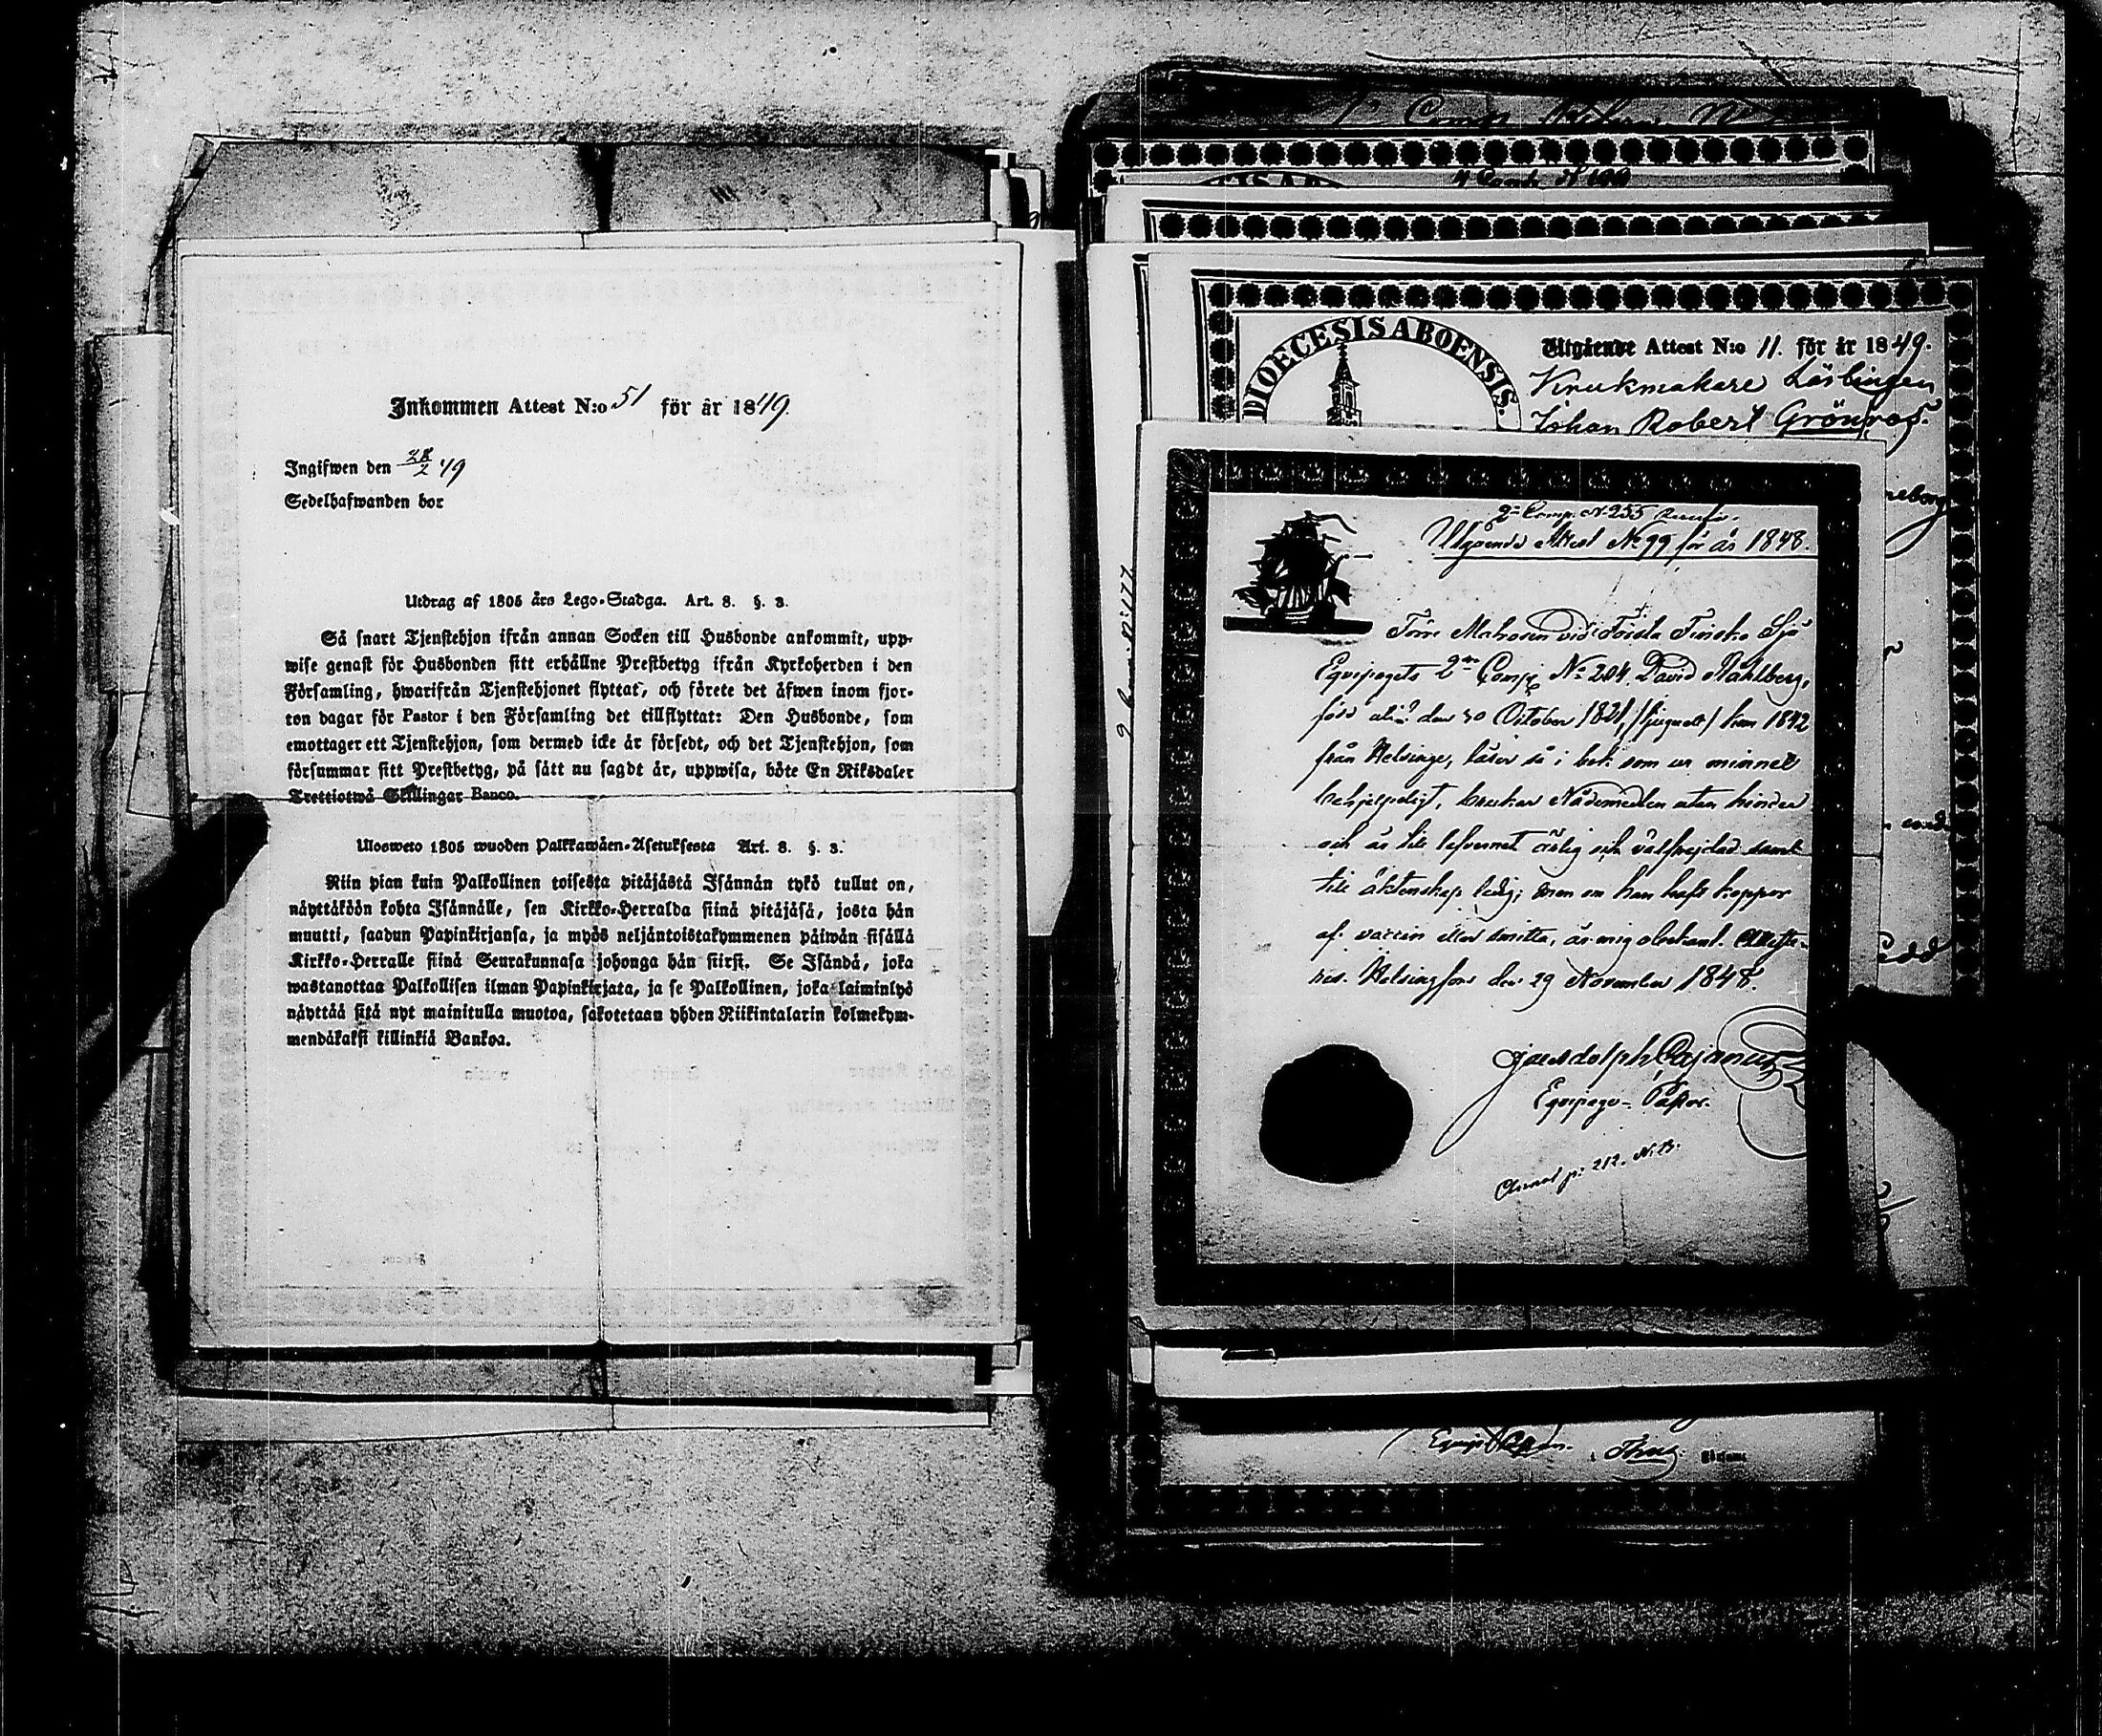 Inkommen Attest N:o 51 för år 1849.
Ingifwen den 28/2 49
Sedelhafwanden bor
Utdrag af 1805 års Lego-Stadga. Art. 8. §. 3.
Så snart Tjenstehjon ifrån annan Socken till Husbonde ankommit, upp-
wise genast för Husbonden sitt erhållne Prestbetyg ifrån Kyrkoherden i den
Församling, hwarifrån Tjenstehjonet flyttat, och förete det äfwen inom fjor-
ton dagar för Pastor i den Församling det tillflyttat: Den Husbonde, som
emottager ett Tjenstehjon, som dermed icke är försedt, och det Tjenstehjon, som
försummar sitt Prestbetyg, på sätt nu sagdt är, uppwisa, böte En Riksdaler
Trettiotwå Skillingar Banco.
Ulosweto 1805 wuoden Palkkawäen-Asetuksesta Art. 8. §. 3.
Niin pian kuin Palkollinen toisesta pitäjästä Isännän tykö tullut on,
näyttäköön kohta Isännälle, sen Kirkko-Herralda siinä pitäjäsä, josta hän
muutti, saadun Papinkirjansa, ja myös neljäntoistakymmenen päiwän sisällä
Kirkko-Herralle siinä Seurakunnasa johonga hän siirsi. Se Isändä, joka
wastanottaa Palkollisen ilman Papinkirjata, ja se Palkollinen, joka laiminlyö
näyttää sitä nyt mainitulla muotoa, sakotetaan yhden Riikintalarin kolmekym-
mendäkaksi killinkiä Bankoa.
4 Comp. N 199
DIOECESIS ABOENSIS.
Utgående Attest N:o 11. för år 1849.
Krukmakare Lärlingen
Johan Robert Grönroos.
2 Comp. N 255
Utgående Attest No 99 för år 1848.
Förre Matrosen vid Första Finska Sjö
Equipagets 2dra Comp. No 204, David Stahlberg,
född den 30 October 1821, kom 1842
från Helsinge, läser så i bok som ur minnet
behjelpeligt, brukar Nådemedlen utan hinder
och är till lefvernet ärlig och välfrejdad samt
till äktenskap ledig; men om han haft koppor
af vaccin eller smitta, är mig obekant. Atteste-
ras. Helsingfors den 29 November 1848.
Equipage-Pastor.
Annot p: 212. N:B.